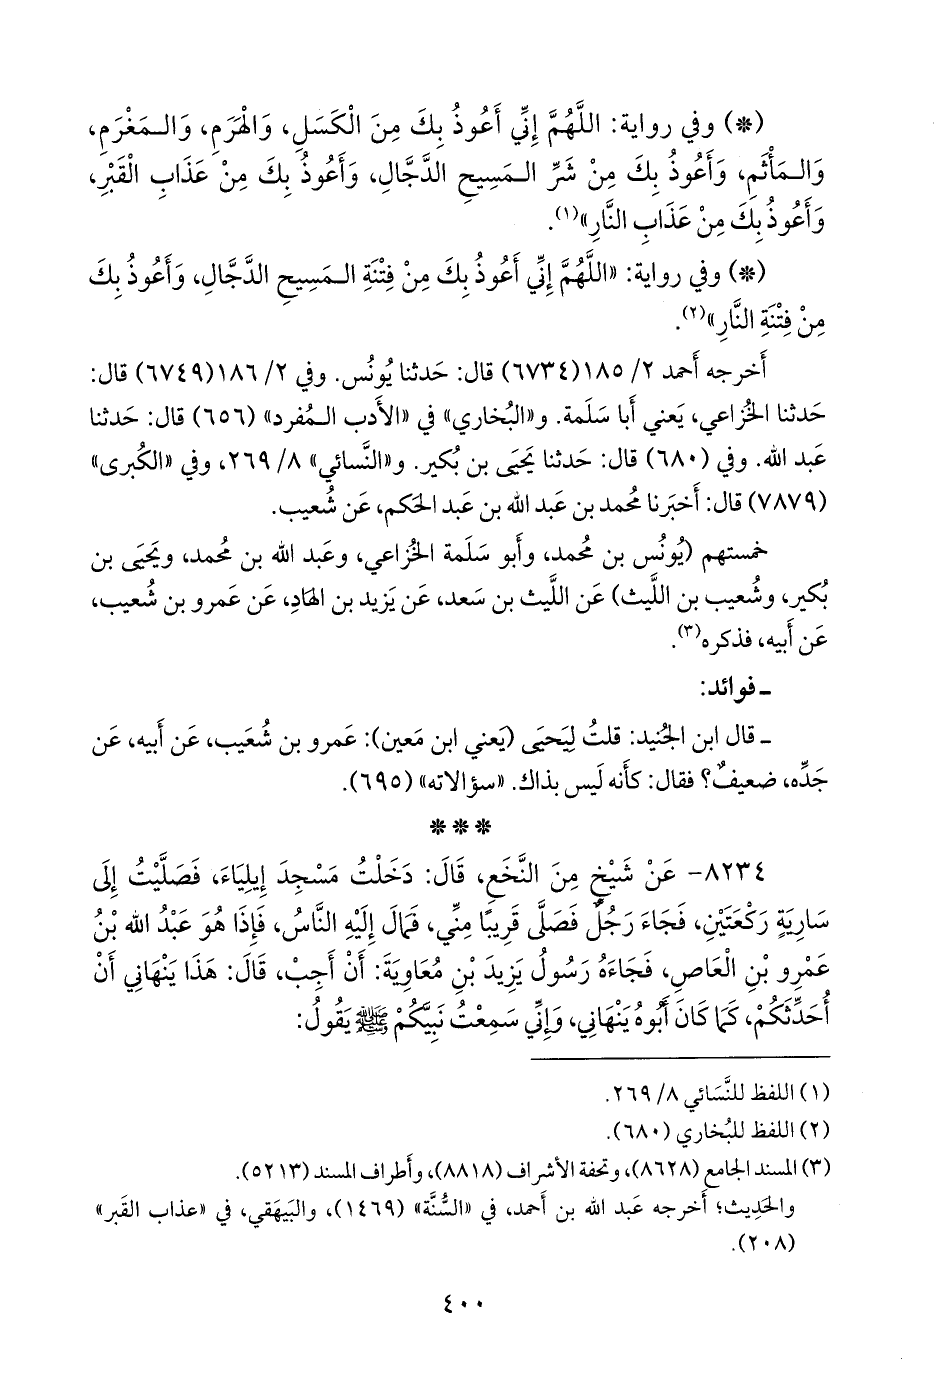 (*) وفي رواية: اللَّهُمَّ إِنِّي أَعُوذُ بِكَ مِنَ الْكَسَلِ، وَالْهَرَمِ، وَالْمَغْرَمِ،
وَالْمَأْثَمِ، وَأَعُوذُ بِكَ مِنْ شَرِّ الْمَسِيحِ الدَّجَّالِ، وَأَعُوذُ بِكَ مِنْ عَذَابِ الْقَبْرِ،
وَأَعُوذُ بِكَ مِنْ عَذَابِ النَّارِ»(١).
(*) وفي رواية: «اللَّهُمَّ إِنِّي أَعُوذُ بِكَ مِنْ فِتْنَةِ الْمَسِيحِ الدَّجَّالِ، وَأَعُوذُ بِكَ
مِنْ فِتْنَةِ النَّارِ»(٢).
أَخرجه أَحمد ٢/ ١٨٥(٦٧٣٤) قال: حَدثنا يُونُس. وفي ٢/ ١٨٦(٦٧٤٩) قال:
حَدثنا الخُزاعي، يَعني أَبا سَلَمة. و«البُخاري» في «الأَدب المُفرد» (٦٥٦) قال: حَدثنا
عَبد الله. وفي (٦٨٠) قال: حَدثنا يَحيَى بن بُكير. و«النَّسائي» ٨/ ٢٦٩، وفي «الكُبرى»
(٧٨٧٩) قال: أَخبَرنا مُحمد بن عَبد الله بن عَبد الحَكم، عَن شُعيب.
خمستهم (يُونُس بن مُحمد، وأَبو سَلَمة الخُزاعي، وعَبد الله بن مُحمد، ويَحيَى بن
بُكير، وشُعيب بن اللَّيث) عَن اللَّيث بن سَعد، عَن يَزيد بن الهَادِ، عَن عَمرو بن شُعيب،
عَن أَبيه، فذكره(٣).
ـ فوائد:
ـ قال ابن الجُنيد: قلتُ لِيَحيَى (يَعني ابن مَعين): عَمرو بن شُعَيب، عَن أَبيه، عَن
جَدِّه، ضعيفٌ؟ فقال: كأَنه لَيس بذاك. «سؤالاته» (٦٩٥).
***
٨٢٣٤- عَنْ شَيْخٍ مِنَ النَّخَعِ، قَالَ: دَخَلْتُ مَسْجِدَ إِيلِيَاءَ، فَصَلَّيْتُ إِلَى
سَارِيَةٍ رَكْعَتَيْنِ، فَجَاءَ رَجُلٌ فَصَلَّى قَرِيبًا مِنِّي، فَمَالَ إِلَيْهِ النَّاسُ، فَإِذَا هُوَ عَبْدُ الله بْنُ
عَمْرِو بْنِ الْعَاصِ، فَجَاءَهُ رَسُولُ يَزِيدَ بْنِ مُعَاوِيَةَ: أَنْ أَجِبْ، قَالَ: هَذَا يَنْهَانِي أَنْ
أُحَدِّثَكُمْ، كَمَا كَانَ أَبُوهُ يَنْهَانِي، وَإِنِّي سَمِعْتُ نَبِيَّكُمْ ﷺ يَقُولُ:
(١) اللفظ للنَّسَائي ٨/ ٢٦٩.
(٢) اللفظ للبُخاري (٦٨٠).
(٣) المسند الجامع (٨٦٢٨)، وتحفة الأشراف (٨٨١٨)، وأطراف المسند (٥٢١٣).
والحَدِيث؛ أخرجه عَبد الله بن أحمد، في «السُّنَّة» (١٤٦٩)، والبَيهَقي، في «عذاب القَبر»
(٢٠٨).
٤٠٠